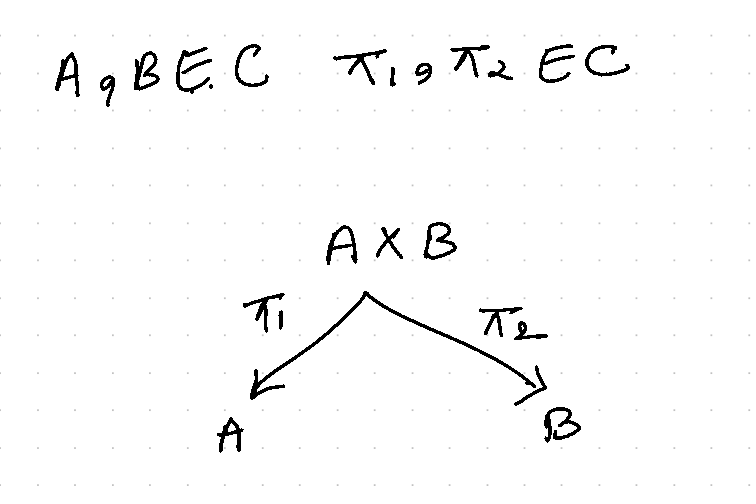 A, B ∈ C π₁, π₂ ∈ C
A × B
π₁ π₂
A B